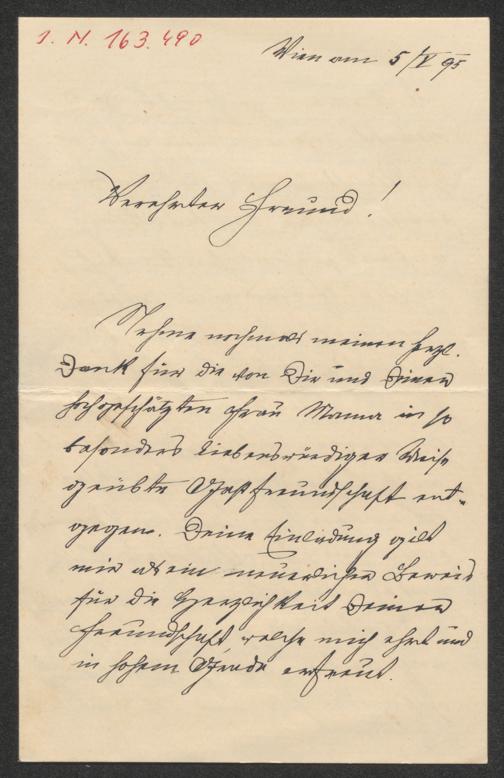 I. N. 163.490
Wien am 5/V 95
Verehrter Freund!
Nehme nochmals meinen herzl.
Dank für die von Dir und Deiner
hochgeschätzten Frau Mama in so
besonders liebenswürdiger Weise
geübte Gastfreundschaft ent-
gegen. Deine Einladung gilt
mir als ein neuerlicher Beweis
für die Herzlichkeit Deiner
Freundschaft, welche mich ehrt und
in hohem Grade erfreut.